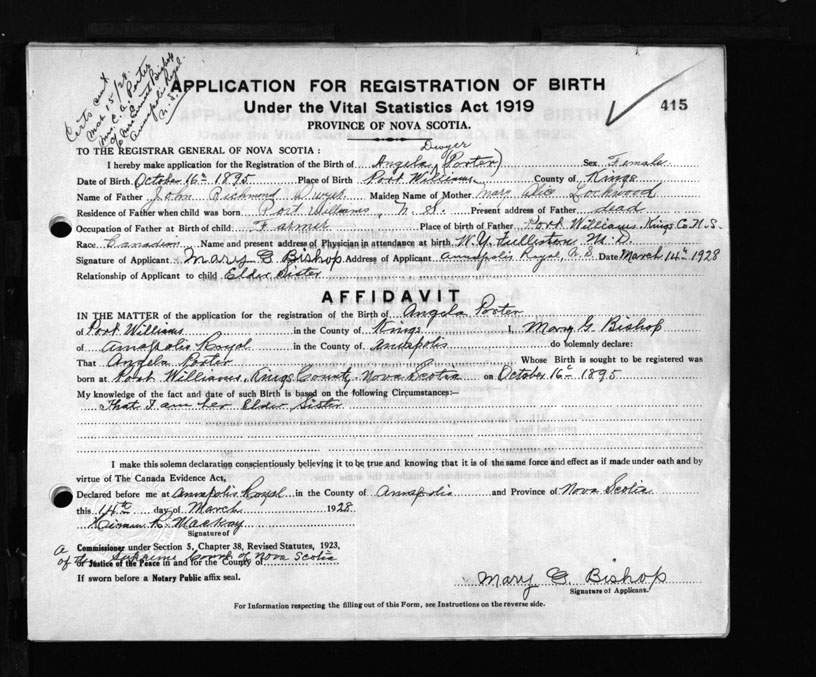 Certs sent
Mar 15/28
Mrs C. A. Porter
c/o Mrs Ernest Bishop
Annapolis Royal
N. S.
APPLICATION FOR REGISTRATION OF BIRTH
Under the Vital Statistics Act 1919
415
PROVINCE OF NOVA SCOTIA.
TO THE REGISTRAR GENERAL OF NOVA SCOTIA :
Dwyer
I hereby make application for the Registration of the Birth of Angela (Porter) Sex Female
Date of Birth October 16th 1895 Place of Birth Port Williams County of Kings
Name of Father John Richmond Dwyer Maiden Name of Mother Mary Alice Lockwood
Residence of Father when child was born Port Williams, N. S. Present address of Father dead
Occupation of Father at Birth of child Farmer Place of birth of Father Port Williams Kings Co N.S.
Race Canadian Name and present address of Physician in attendance at birth W. Y. Fullerton M. D.
Signature of Applicant Mary G Bishop Address of Applicant Annapolis Royal, N.S. Date March 14th 1928
Relationship of Applicant to child Elder Sister
AFFIDAVIT
IN THE MATTER of the application for the registration of the Birth of Angela Porter
of Port Williams in the County of Kings I, Mary G Bishop
of Annapolis Royal in the County of Annapolis do solemnly declare:
That Angela Porter Whose Birth is sought to be registered was
born at Port Williams, Kings County, Nova Scotia on October 16th 1895
My knowledge of the fact and date of such Birth is based on the following Circumstances:—
That I am her Elder Sister
I make this solemn declaration conscientiously believing it to be true and knowing that it is of the same force and effect as if made under oath and by
virtue of The Canada Evidence Act,
Declared before me at Annapolis Royal in the County of Annapolis and Province of Nova Scotia
this 14th day of March 1928
R. Mackay
Signature of
A Commissioner under Section 5, Chapter 38, Revised Statutes, 1923,
of the Supreme Court of Nova Scotia
or Justice of the Peace in and for the County of
If sworn before a Notary Public affix seal.
Mary G. Bishop
Signature of Applicant.
For Information respecting the filling out of this Form, see Instructions on the reverse side.